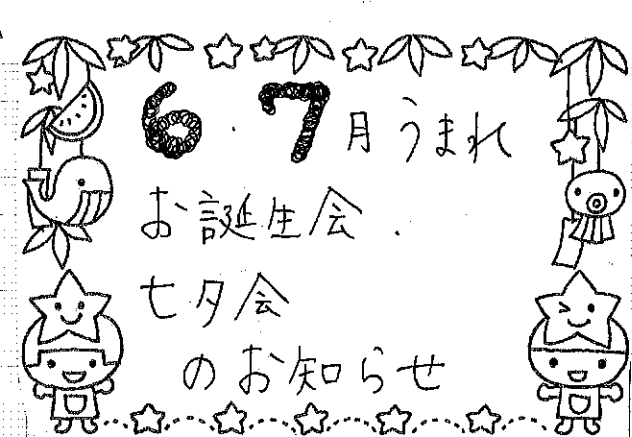 6・7月うまれ
お誕生会・
七夕会
のお知らせ